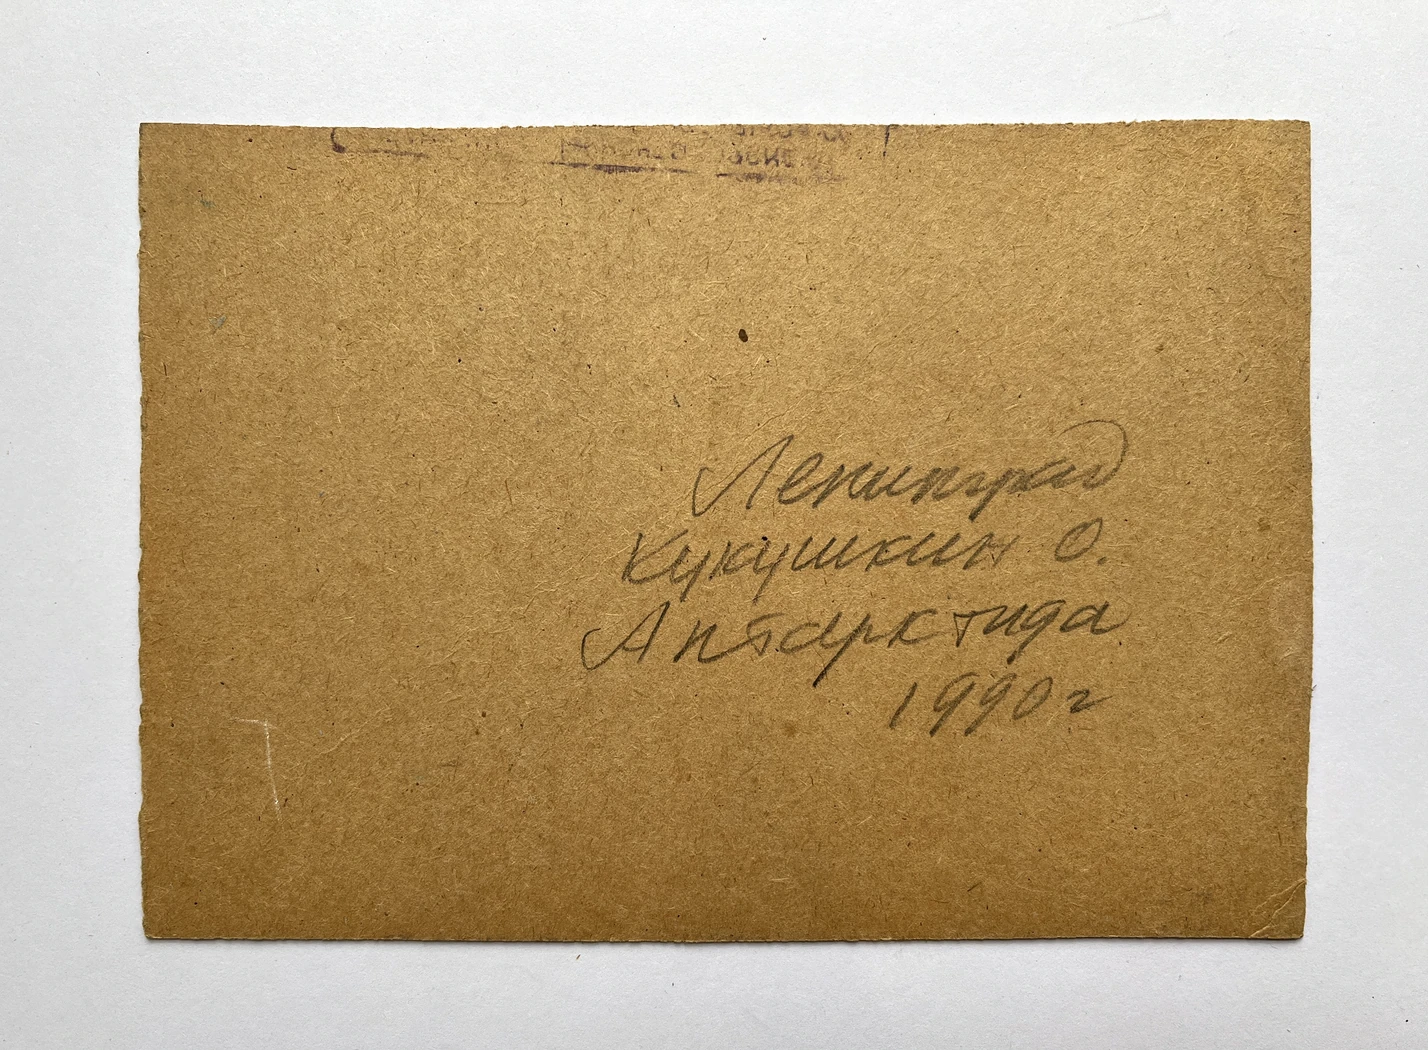 Ленинград
Кукушкин О.
Антарктида
1990г